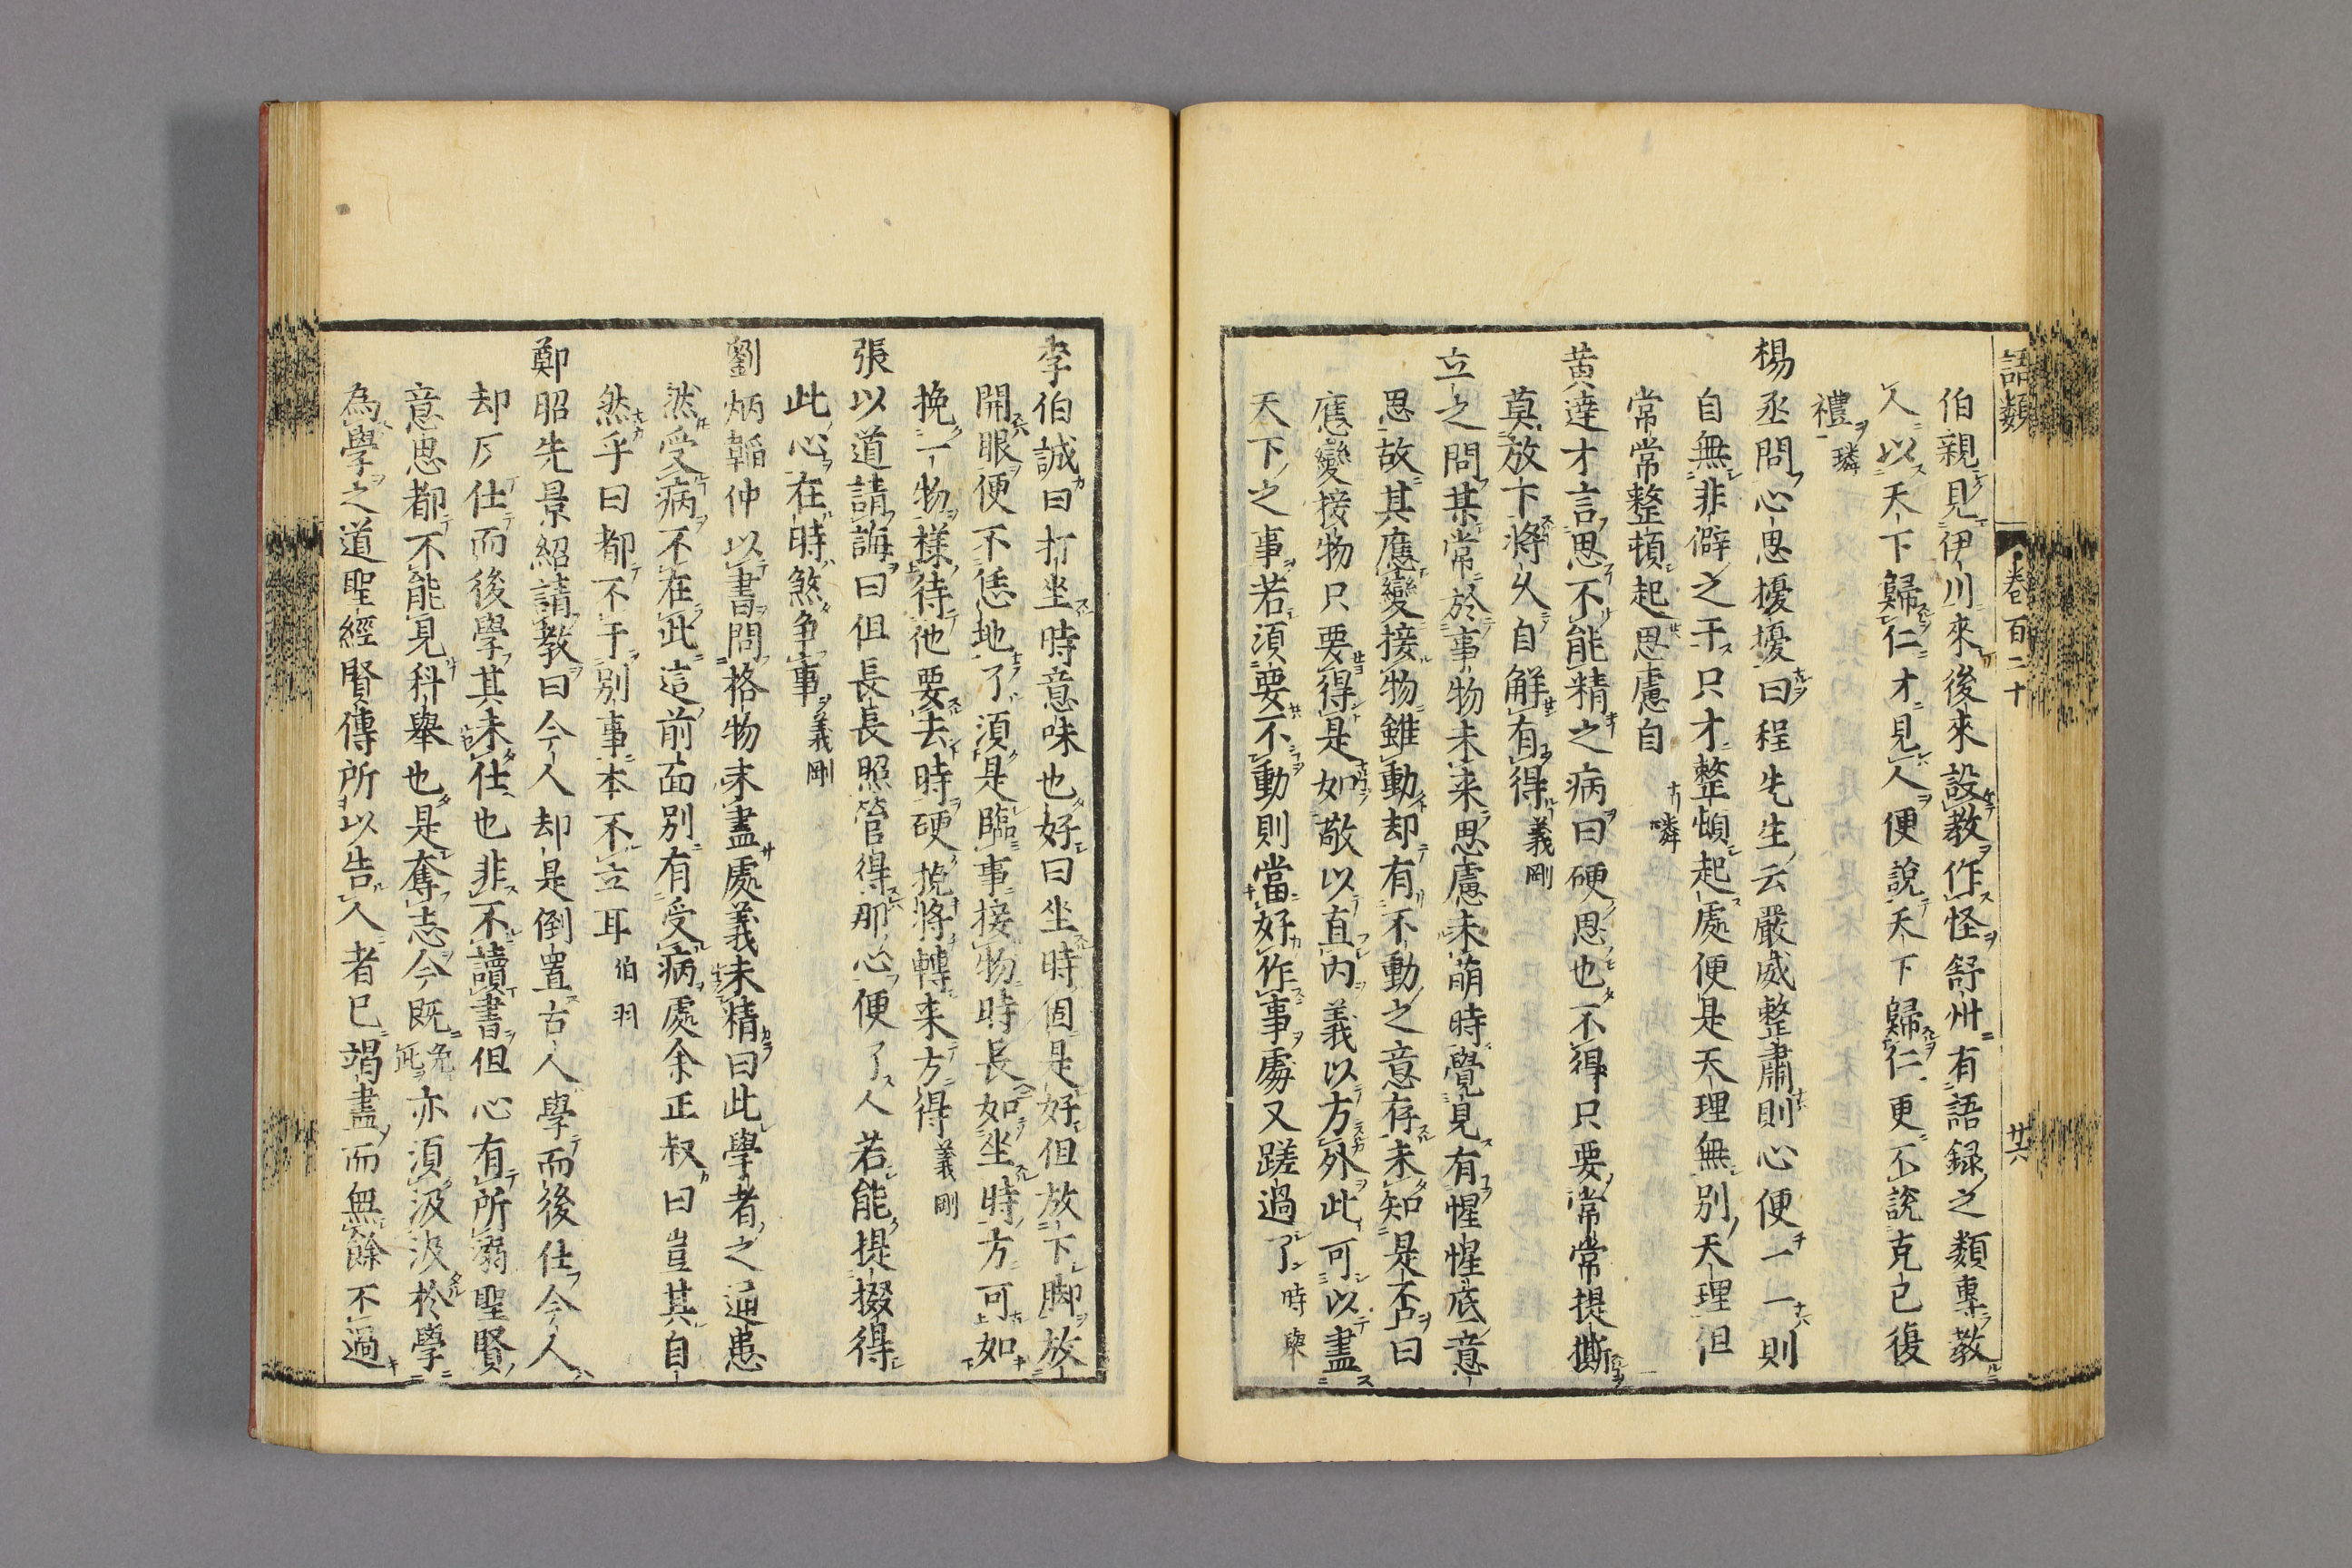 語類
卷百二十
廿六
伯親見伊川來後來設教作怪舒州有語録之類專教
人以天下歸仁才見人便說天下歸仁更不說克己復
禮 璘
楊丞問心思擾擾曰程先生云嚴威整肅則心便一一則
自無非僻之干只才整頓起處便是天理無別天理但
常常整頓起思慮自一 璘
黃達才言思不能精之病曰硬思也不得只要常常提撕
莫放下將久自解有得 義剛
立之問某常於事物未来思慮未萌時覺見有惺惺底意
思故其應變接物雖動却有不動之意存未知是否曰
應變接物只要得是如敬以直內義以方外此可以盡
天下之事若須要不動則當好作事處又蹉過了 時舉
李伯誠曰打坐時意味也好曰坐時固是好但放下脚放
開眼便不恁地了須是臨事接物時長如坐時方可如
挽一物樣待他要去時硬挽將轉来方得 義剛
張以道請誨曰但長長照管得那心便了人若能提掇得
此心在時煞争事 義剛
劉炳韜仲以書問格物未盡處義未精曰此學者之通患
然受病不在此這前面別有受病處余正叔曰豈其自
然乎曰都不干別事本不立耳 伯羽
鄭昭先景紹請教曰今人却是倒置古人學而後仕今人
却反仕而後學其未仕也非不讀書但心有所溺聖賢
意思都不能見科舉也是奪志今既免此亦須汲汲於學
為學之道聖經賢傳所以告人者已竭盡而無餘不過